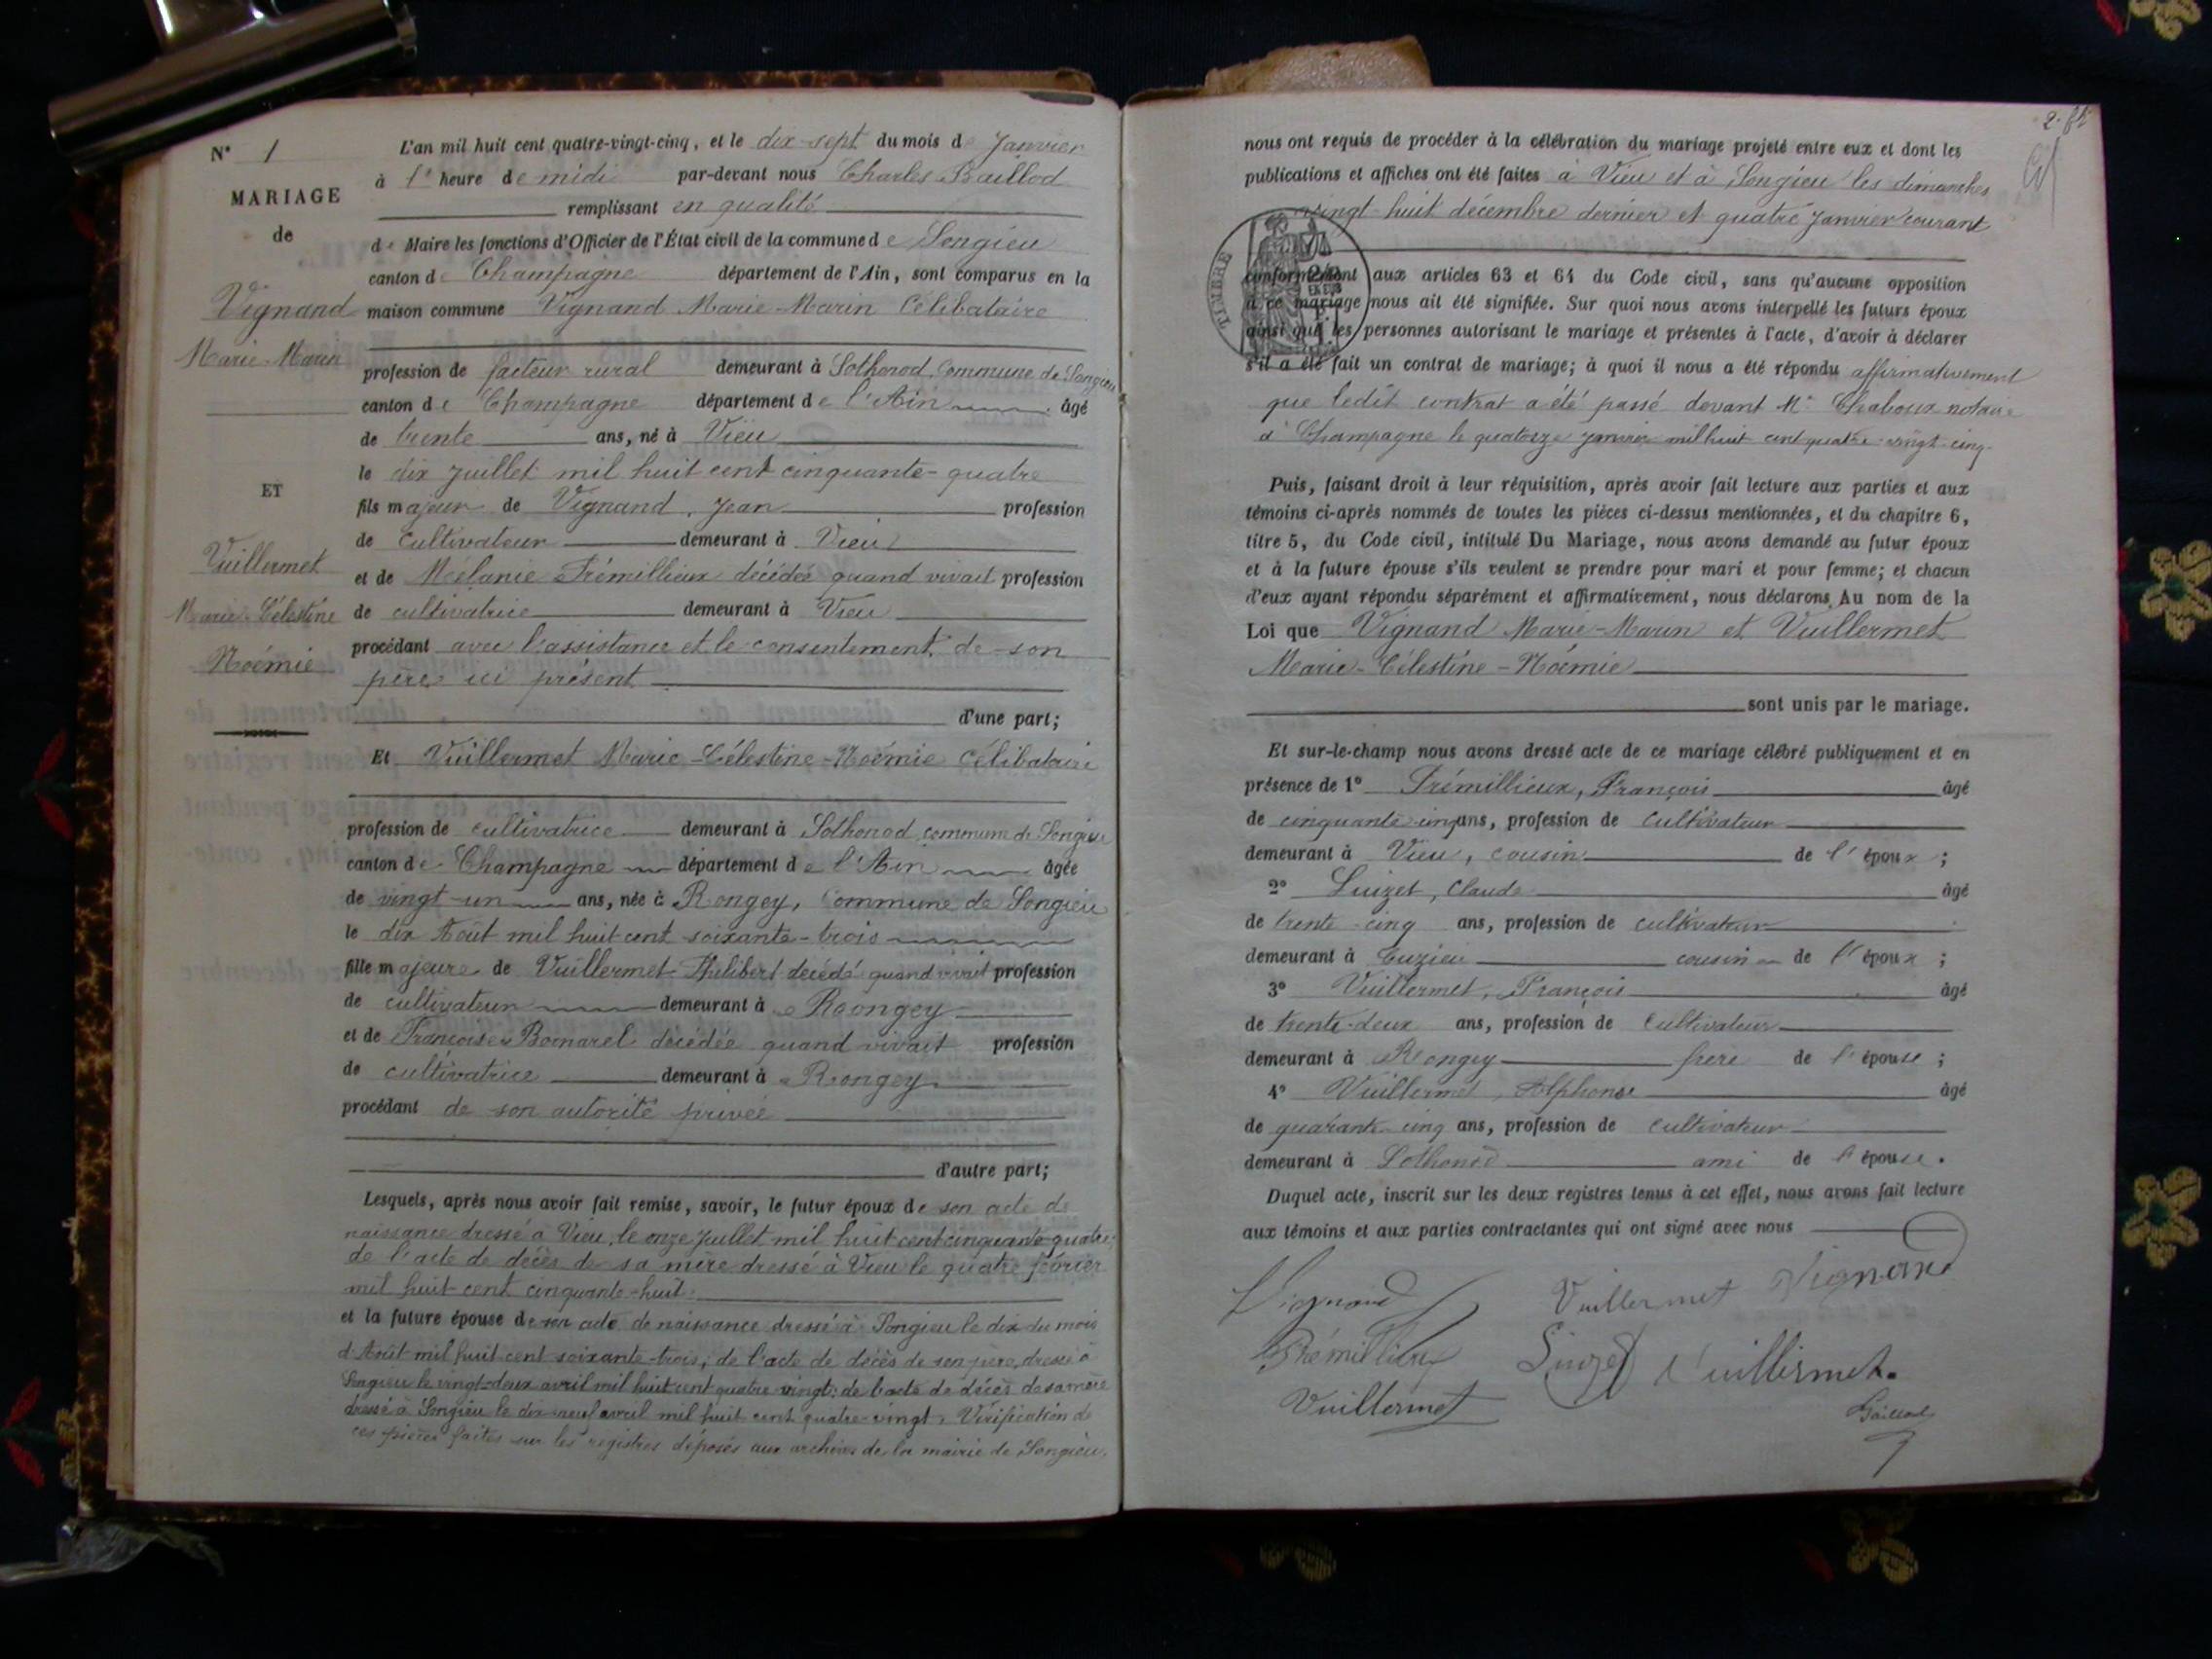 N° 1
MARIAGE
de
Vignand
Marie-Marin
ET
Vuillermet
Marie-Célestine
Noémie
L'an mil huit cent quatre-vingt-cinq, et le dix-sept du mois de Janvier
à 1e heure de midi par-devant nous Charles Baillod
remplissant en qualité
de Maire les fonctions d'Officier de l'État civil de la commune de Songieu
canton de Champagne département de l'Ain, sont comparus en la
maison commune Vignand Marie-Marin Célibataire
profession de facteur rural demeurant à Sothonod, Commune de Songieu
canton de Champagne département de l'Ain âgé
de trente ans, né à Vieu
le dix Juillet mil huit cent cinquante-quatre
fils majeur de Vignand, Jean profession
de Cultivateur demeurant à Vieu
et de Mélanie Frémillieux décédée quand vivait profession
de cultivatrice demeurant à Vieu
procédant avec l'assistance et le consentement de son
père ici présent
d'une part;
Et Vuillermet Marie-Célestine-Noémie Célibataire
profession de cultivatrice demeurant à Sothonod commune de Songieu
canton de Champagne département de l'Ain âgée
de vingt-un ans, née à Rongey, Commune de Songieu
le dix Août mil huit cent soixante-trois
fille majeure de Vuillermet Philibert décédé quand vivait profession
de cultivateur demeurant à Rongey
et de Françoise Bornarel décédée quand vivait profession
de cultivatrice demeurant à Rongey
procédant de son autorité privée
d'autre part;
Lesquels, après nous avoir fait remise, savoir, le futur époux de son acte de
naissance dressé à Vieu, le onze Juillet mil huit cent cinquante-quatre;
de l'acte de décès de sa mère dressé à Vieu le quatre février
mil huit-cent cinquante-huit;
et la future épouse de son acte de naissance dressé à Songieu le dix du mois
d'Août mil huit cent soixante-trois; de l'acte de décès de son père, dressé à
Songieu le vingt-deux avril mil huit cent quatre vingt; de l'acte de décès de sa mère
dressé à Songieu le dix-neuf avril mil huit cent quatre-vingt. Vérification de
ces pièces faites sur les registres déposés aux archives de la mairie de Songieu,
nous ont requis de procéder à la célébration du mariage projeté entre eux et dont les
publications et affiches ont été faites à Vieu et à Songieu les dimanches
vingt-huit décembre dernier et quatre Janvier courant
TIMBRE
conformément aux articles 63 et 64 du Code civil, sans qu'aucune opposition
à ce mariage nous ait été signifiée. Sur quoi nous avons interpellé les futurs époux
ainsi que les personnes autorisant le mariage et présentes à l'acte, d'avoir à déclarer
s'il a été fait un contrat de mariage; à quoi il nous a été répondu affirmativement
que ledit contrat a été passé devant Me Chaboux notaire
à Champagne le quatorze janvier mil huit cent quatre-vingt-cinq.
Puis, faisant droit à leur réquisition, après avoir fait lecture aux parties et aux
témoins ci-après nommés de toutes les pièces ci-dessus mentionnées, et du chapitre 6,
titre 5, du Code civil, intitulé Du Mariage, nous avons demandé au futur époux
et à la future épouse s'ils veulent se prendre pour mari et pour femme; et chacun
d'eux ayant répondu séparément et affirmativement, nous déclarons Au nom de la
Loi que Vignand Marie-Marin et Vuillermet
Marie-Célestine-Noémie
sont unis par le mariage.
Et sur-le-champ nous avons dressé acte de ce mariage célébré publiquement et en
présence de 1° Frémillieux, François âgé
de cinquante-cinq ans, profession de Cultivateur
demeurant à Vieu, cousin de l'époux;
2° Luizet, Claude âgé
de trente-cinq ans, profession de cultivateur
demeurant à Cuzieu cousin de l'époux;
3° Vuillermet, François âgé
de trente-deux ans, profession de Cultivateur
demeurant à Rongey frère de l'épouse;
4° Vuillermet, Alphonse âgé
de quarante-cinq ans, profession de Cultivateur
demeurant à Sothonod ami de l'épouse.
Duquel acte, inscrit sur les deux registres tenus à cet effet, nous avons fait lecture
aux témoins et aux parties contractantes qui ont signé avec nous
Vignand Vuillermet Vignand
Frémillieux Luizet Vuillermet.
Vuillermet Baillod